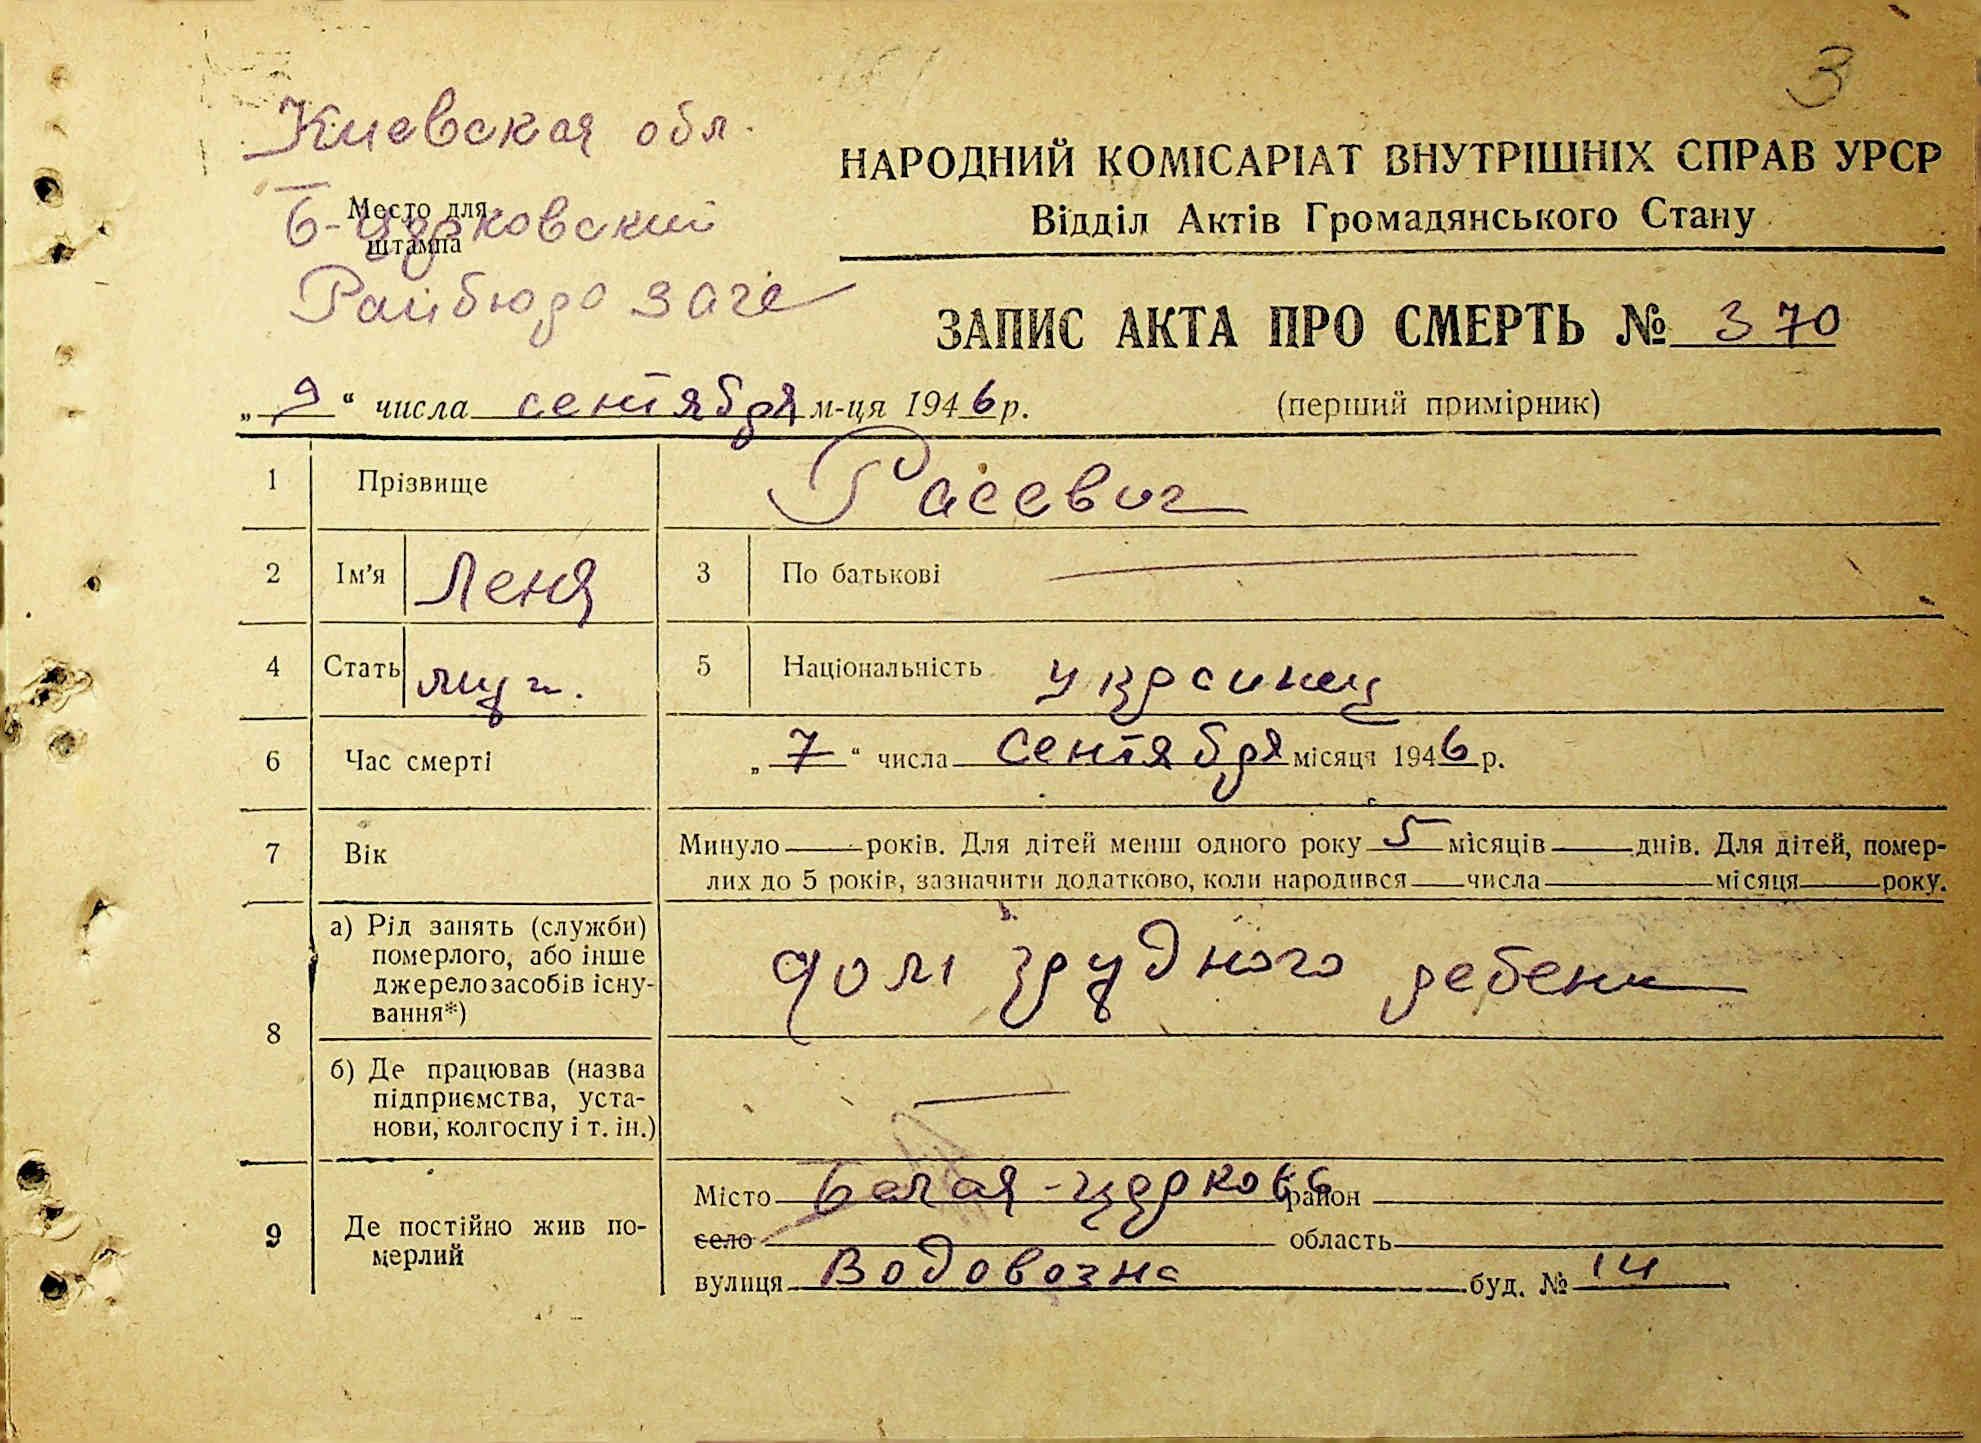 3
Киевская обл.
НАРОДНИЙ КОМІСАРІАТ ВНУТРІШНІХ СПРАВ УРСР
Место для штампа
Б-Церковский
Відділ Актів Громадянського Стану
Райбюро загс
ЗАПИС АКТА ПРО СМЕРТЬ № 370
„ 9 “ числа сентября м-ця 1946 р. (перший примірник)
1 Прізвище Расевич
2 Ім'я Леня 3 По батькові —
4 Стать муж. 5 Національність украинец
6 Час смерти „ 7 “ числа сентября місяця 1946 р.
7 Вік Минуло — років. Для дітей менш одного року 5 місяців — днів. Для дітей, помер-
лих до 5 років, зазначити додатково, коли народився — числа — місяця — року.
8 а) Рід занять (служби)
померлого, або інше
джерело засобів існу-
вання*)
грудного ребенк
б) Де працював (назва
підприємства, уста-
нови, колгоспу і т. ін.)
—
9 Де постійно жив по-
мерлий
Місто Белая-Церковь район
село область
вулиця Водовозна буд. № 14